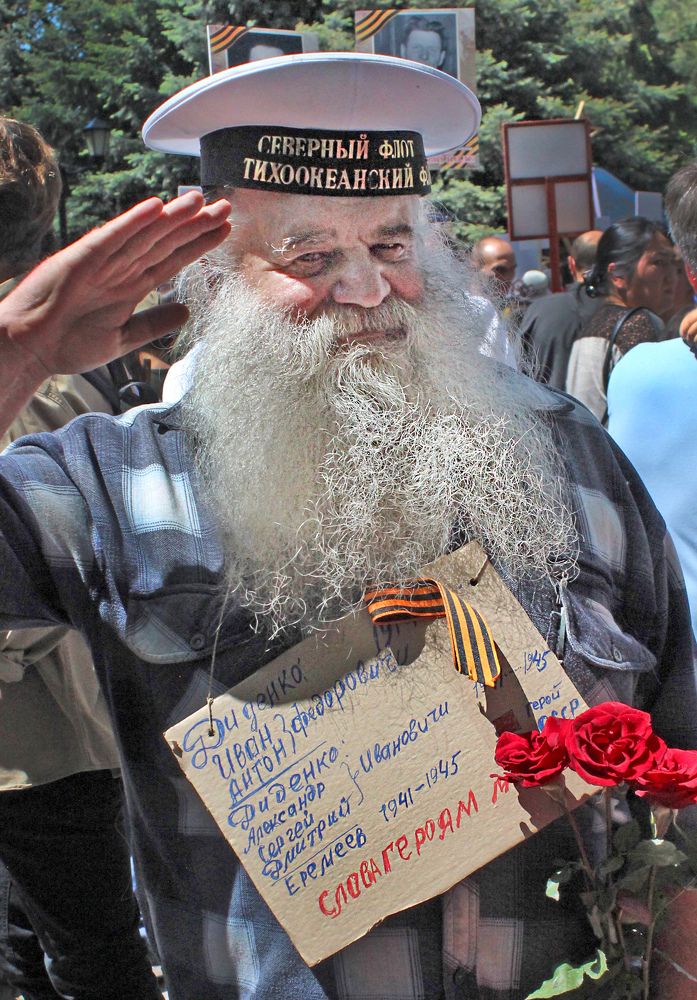 СЕВЕРНЫЙ ФЛОТ
ТИХООКЕАНСКИЙ Ф
Диденко.
Иван } Федорович
Антон
Диденко.
Александр
Сергей } Ивановичи
Дмитрий
Еремеев 1941-1945
1945
герой
СССР
СЛАВА ГЕРОЯМ